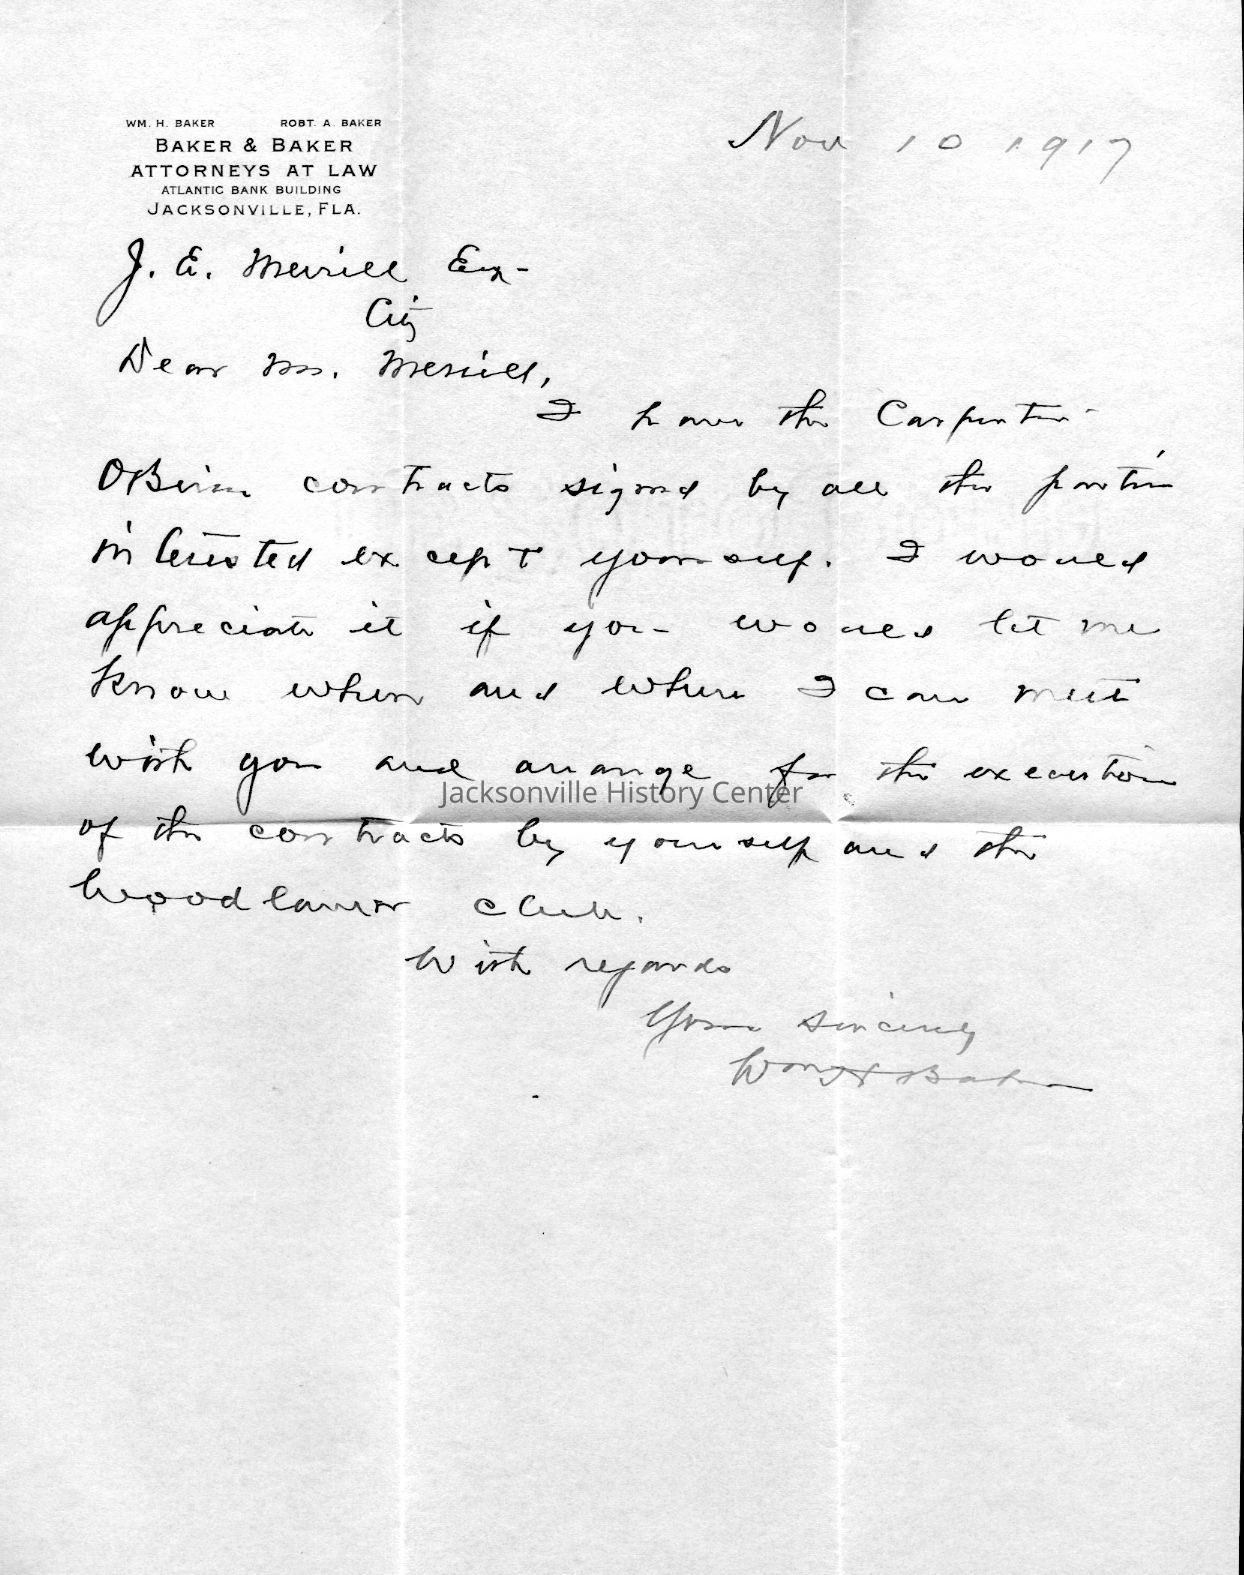 WM. H. BAKER ROBT. A. BAKER
BAKER & BAKER
ATTORNEYS AT LAW
ATLANTIC BANK BUILDING
JACKSONVILLE, FLA.
Nov 10 1917
J. E. Merrill Esq-
City
Dear Mr. Merrill,
I have the Carpenter-
OBrien contracts signed by all the parties
interested except yourself. I would
appreciate it if you would let me
know when and where I can meet
with you and arrange for the execution
of the contracts by yourself and the
Woodlawn club.
With regards
Yours sincerely
Wm H Baker
Jacksonville History Center